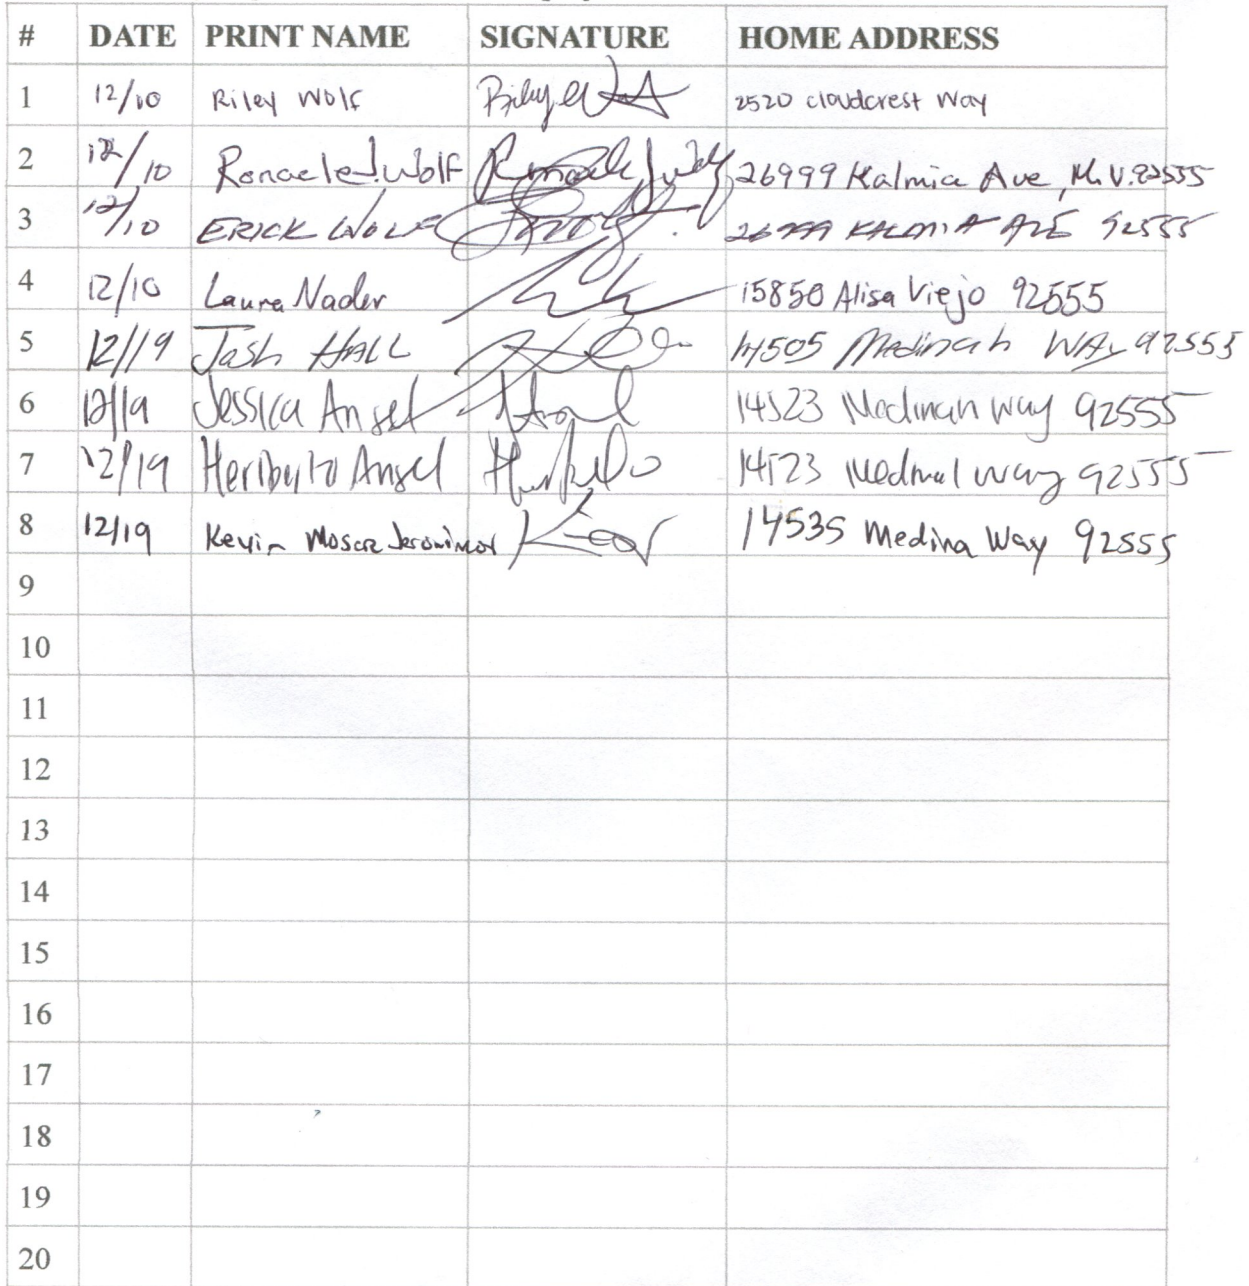 # DATE PRINT NAME SIGNATURE HOME ADDRESS
1 12/10 Riley Wolf 2520 cloudcrest Way
2 12/10 Ronaele J. Wolf 26999 Kalmia Ave, M.V. 92555
3 12/10 ERICK WOLF 26999 KALMIA AVE 92555
4 12/10 Laura Nader 15850 Alisa Viejo 92555
5 12/19 Josh HALL 14505 Medinah WAy 92555
6 12/19 Jessica Angel 14523 Medinah way 92555
7 12/19 Heriberto Angel 14523 way 92555
8 12/19 Kevin 14535 Medina Way 92555
9
10
11
12
13
14
15
16
17
18
19
20